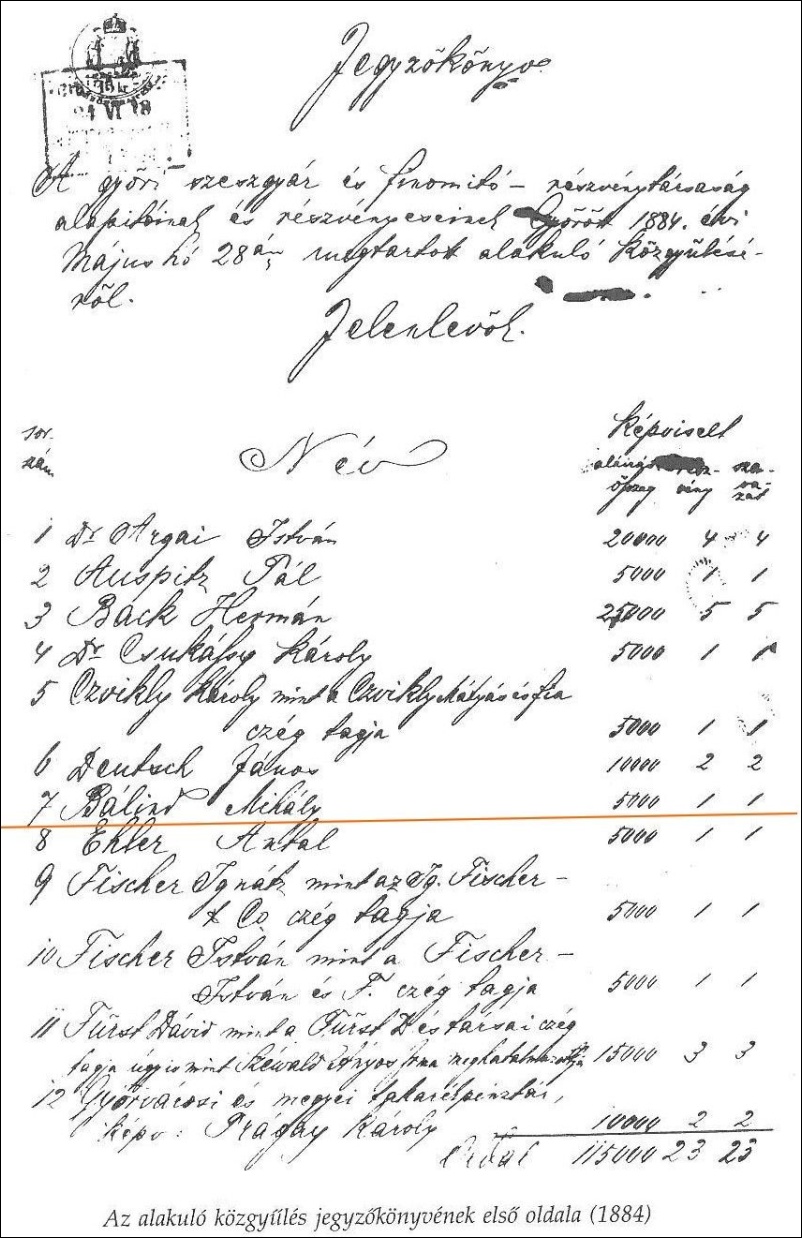 35 kr
84 VI 18
Jegyzőkönyv
A győri szeszgyár és finomító – részvénytársaság
alapitóinak és részvényeseinek Győrött 1884. évi
Május hó 28án megtartott alakuló Közgyűlésé-
ről.
Jelenlevők.
sor. szám
Név
Képviselt
aláirás rész- sza-
összeg vény va-
zat
1 Dr Argai István 20000 4 4
2 Auspitz Pál 5000 1 1
3 Back Hermán 25000 5 5
4 Dr Csukásy Károly 5000 1 1
5 Czvikly Károly mint a Czvikly Mátyás és fia
czég tagja 5000 1 1
6 Deutsch János 10000 2 2
7 Bálind Mihály 5000 1 1
8 Ehler Antal 5000 1 1
9 Fischer Ignátz mint az Ig. Fischer –
& Co czég tagja 5000 1 1
10 Fischer István mint a Fischer –
István és F. czég tagja 5000 1 1
11 Fürst Dávid mint a Fürst D és társai czég
tagja úgyis mint 15000 3 3
12 Győrvárosi és megyei takarékpénztár,
képv: Prágay Károly 10000 2 2
Oldal 115000 23 23
Az alakuló közgyűlés jegyzőkönyvének első oldala (1884)